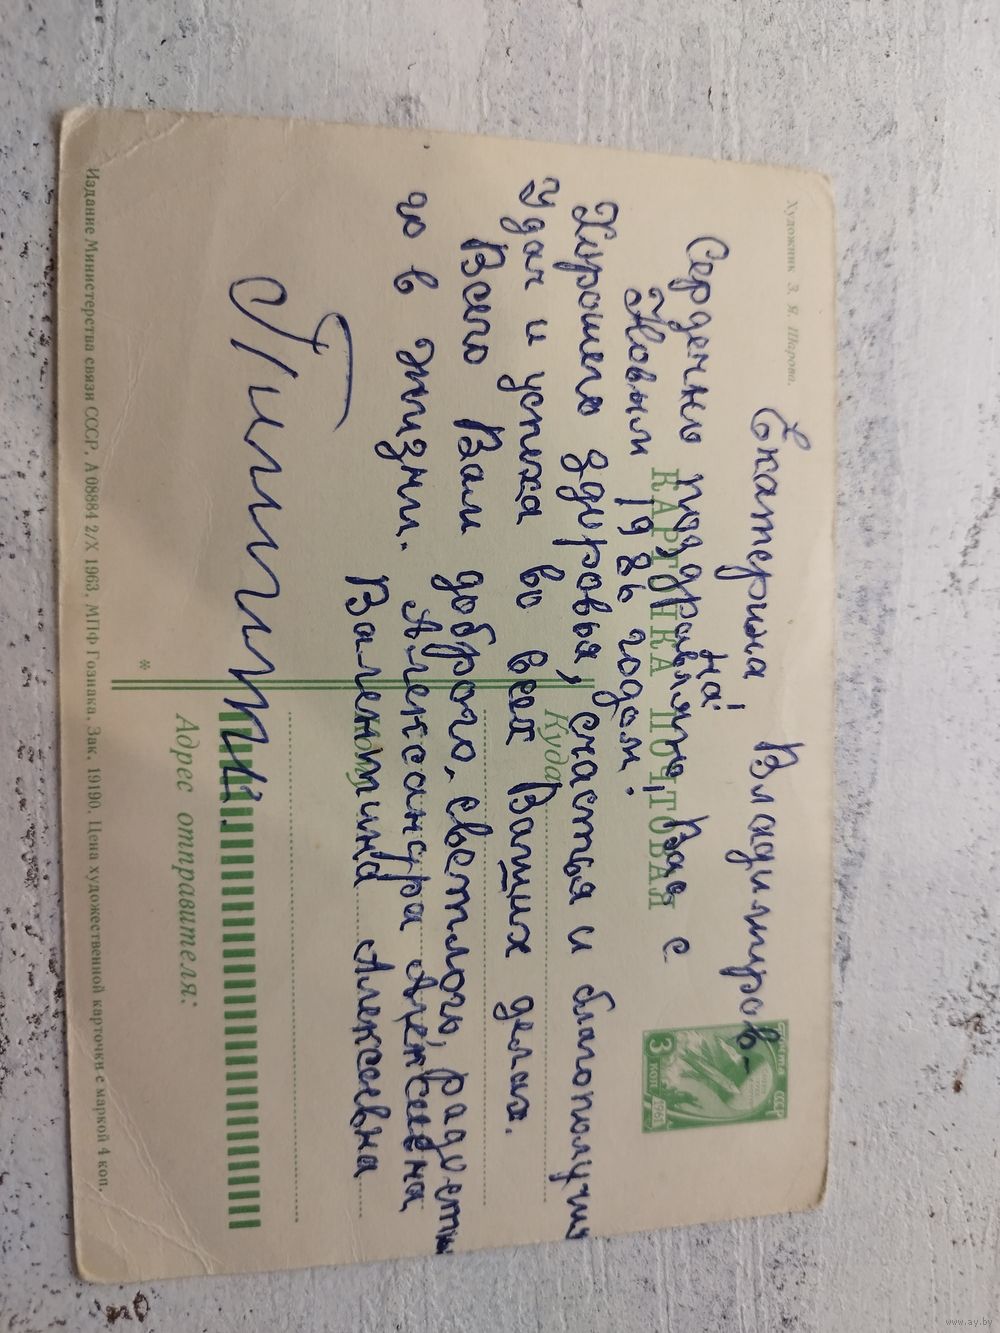 Художник З. Я. Шарова.
Екатерина Владимиров-
на!
Сердечно поздравляю Вас с
Новым 1986 годом!
Хорошего здоровья, счастья и благополучия
Удач и успеха во всех Ваших делах.
Всего Вам доброго, светлого, радостно
го в жизни.
Александра Алексеевна
Валентина Алексевна
КАРТОЧКА ПОЧТОВАЯ
ПОЧТА СССР
3 КОП.
Куда
Кому
Адрес отправителя:
*
Издание Министерства связи СССР. А 08884 2/X 1963. МПФ Гознака. Зак. 19190. Цена художественной карточки с маркой 4 коп.
www.ay.by